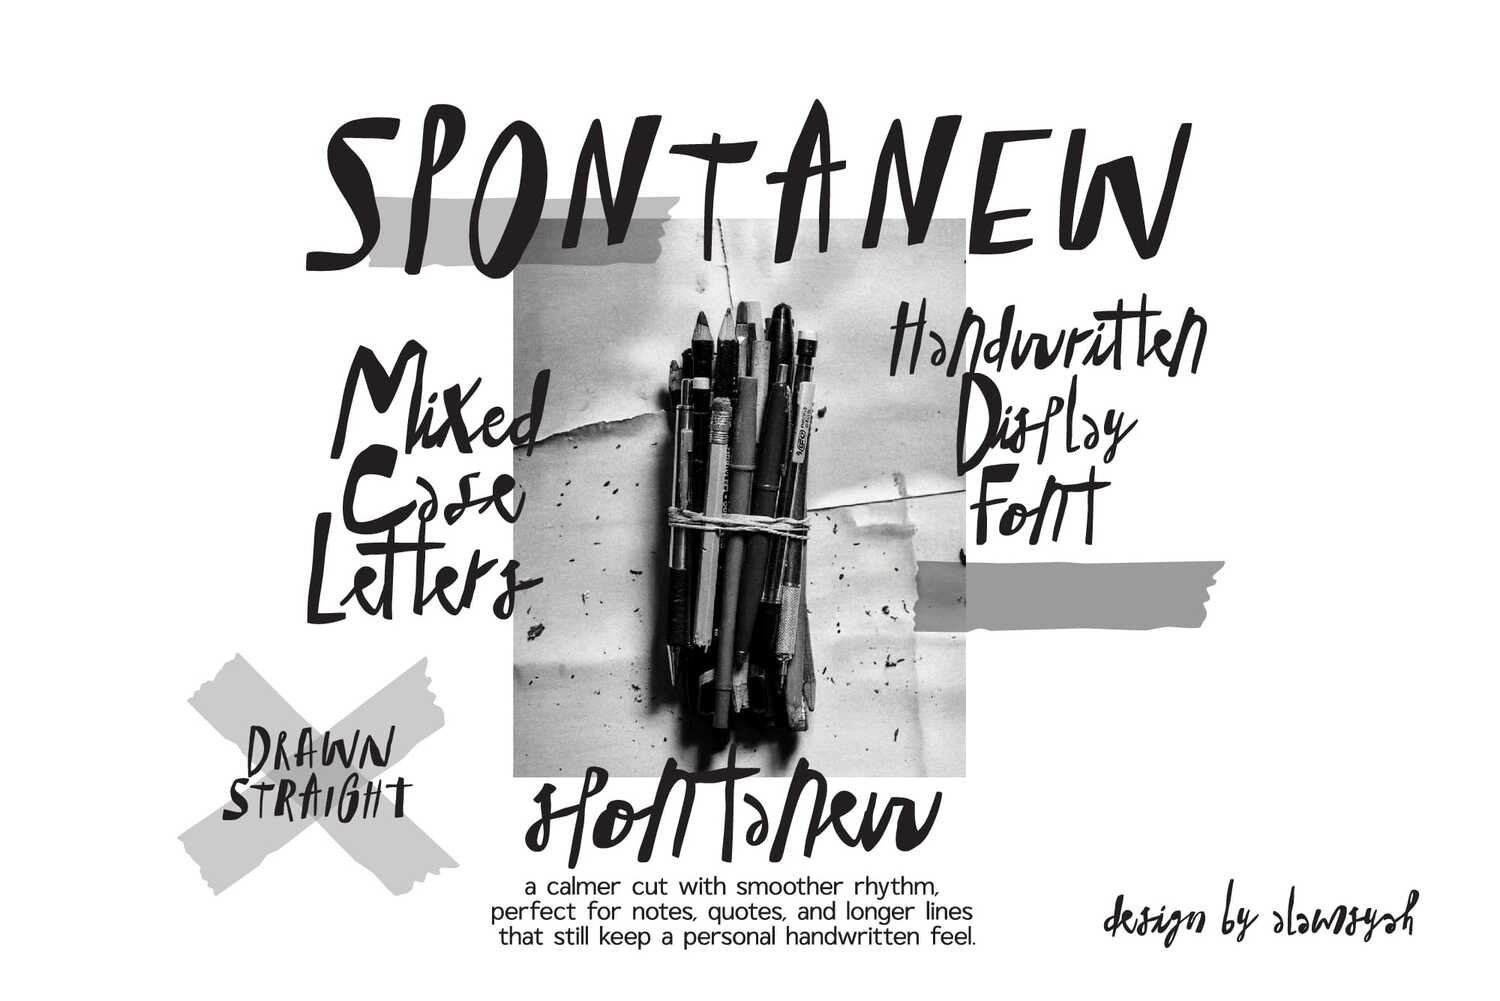 SPONTANEW
Handwritten
Display
Font
Mixed
Case
Letters
DRAWN
STRAIGHT
spontanew
a calmer cut with smoother rhythm,
perfect for notes, quotes, and longer lines
that still keep a personal handwritten feel.
design by alawnsyah